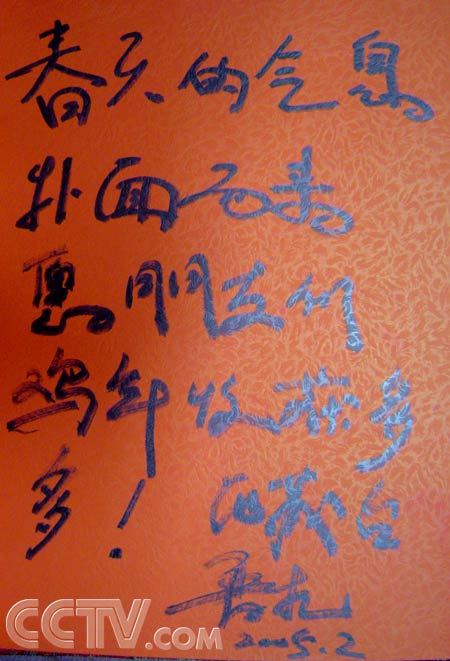 春天的气息
扑面而来
愿朋友们
鸡年收获多
多！ 西藏台
2005.2
CCTV.com